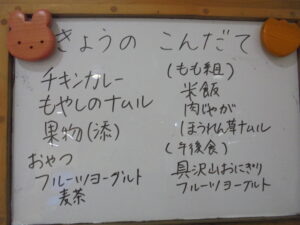 きょうの こんだて
チキンカレー
もやしのナムル
果物(添)
おやつ
フルーツヨーグルト
麦茶
(もも組)
米飯
肉じゃが
ほうれん草ナムル
(午後食)
具沢山おにぎり
フルーツヨーグルト